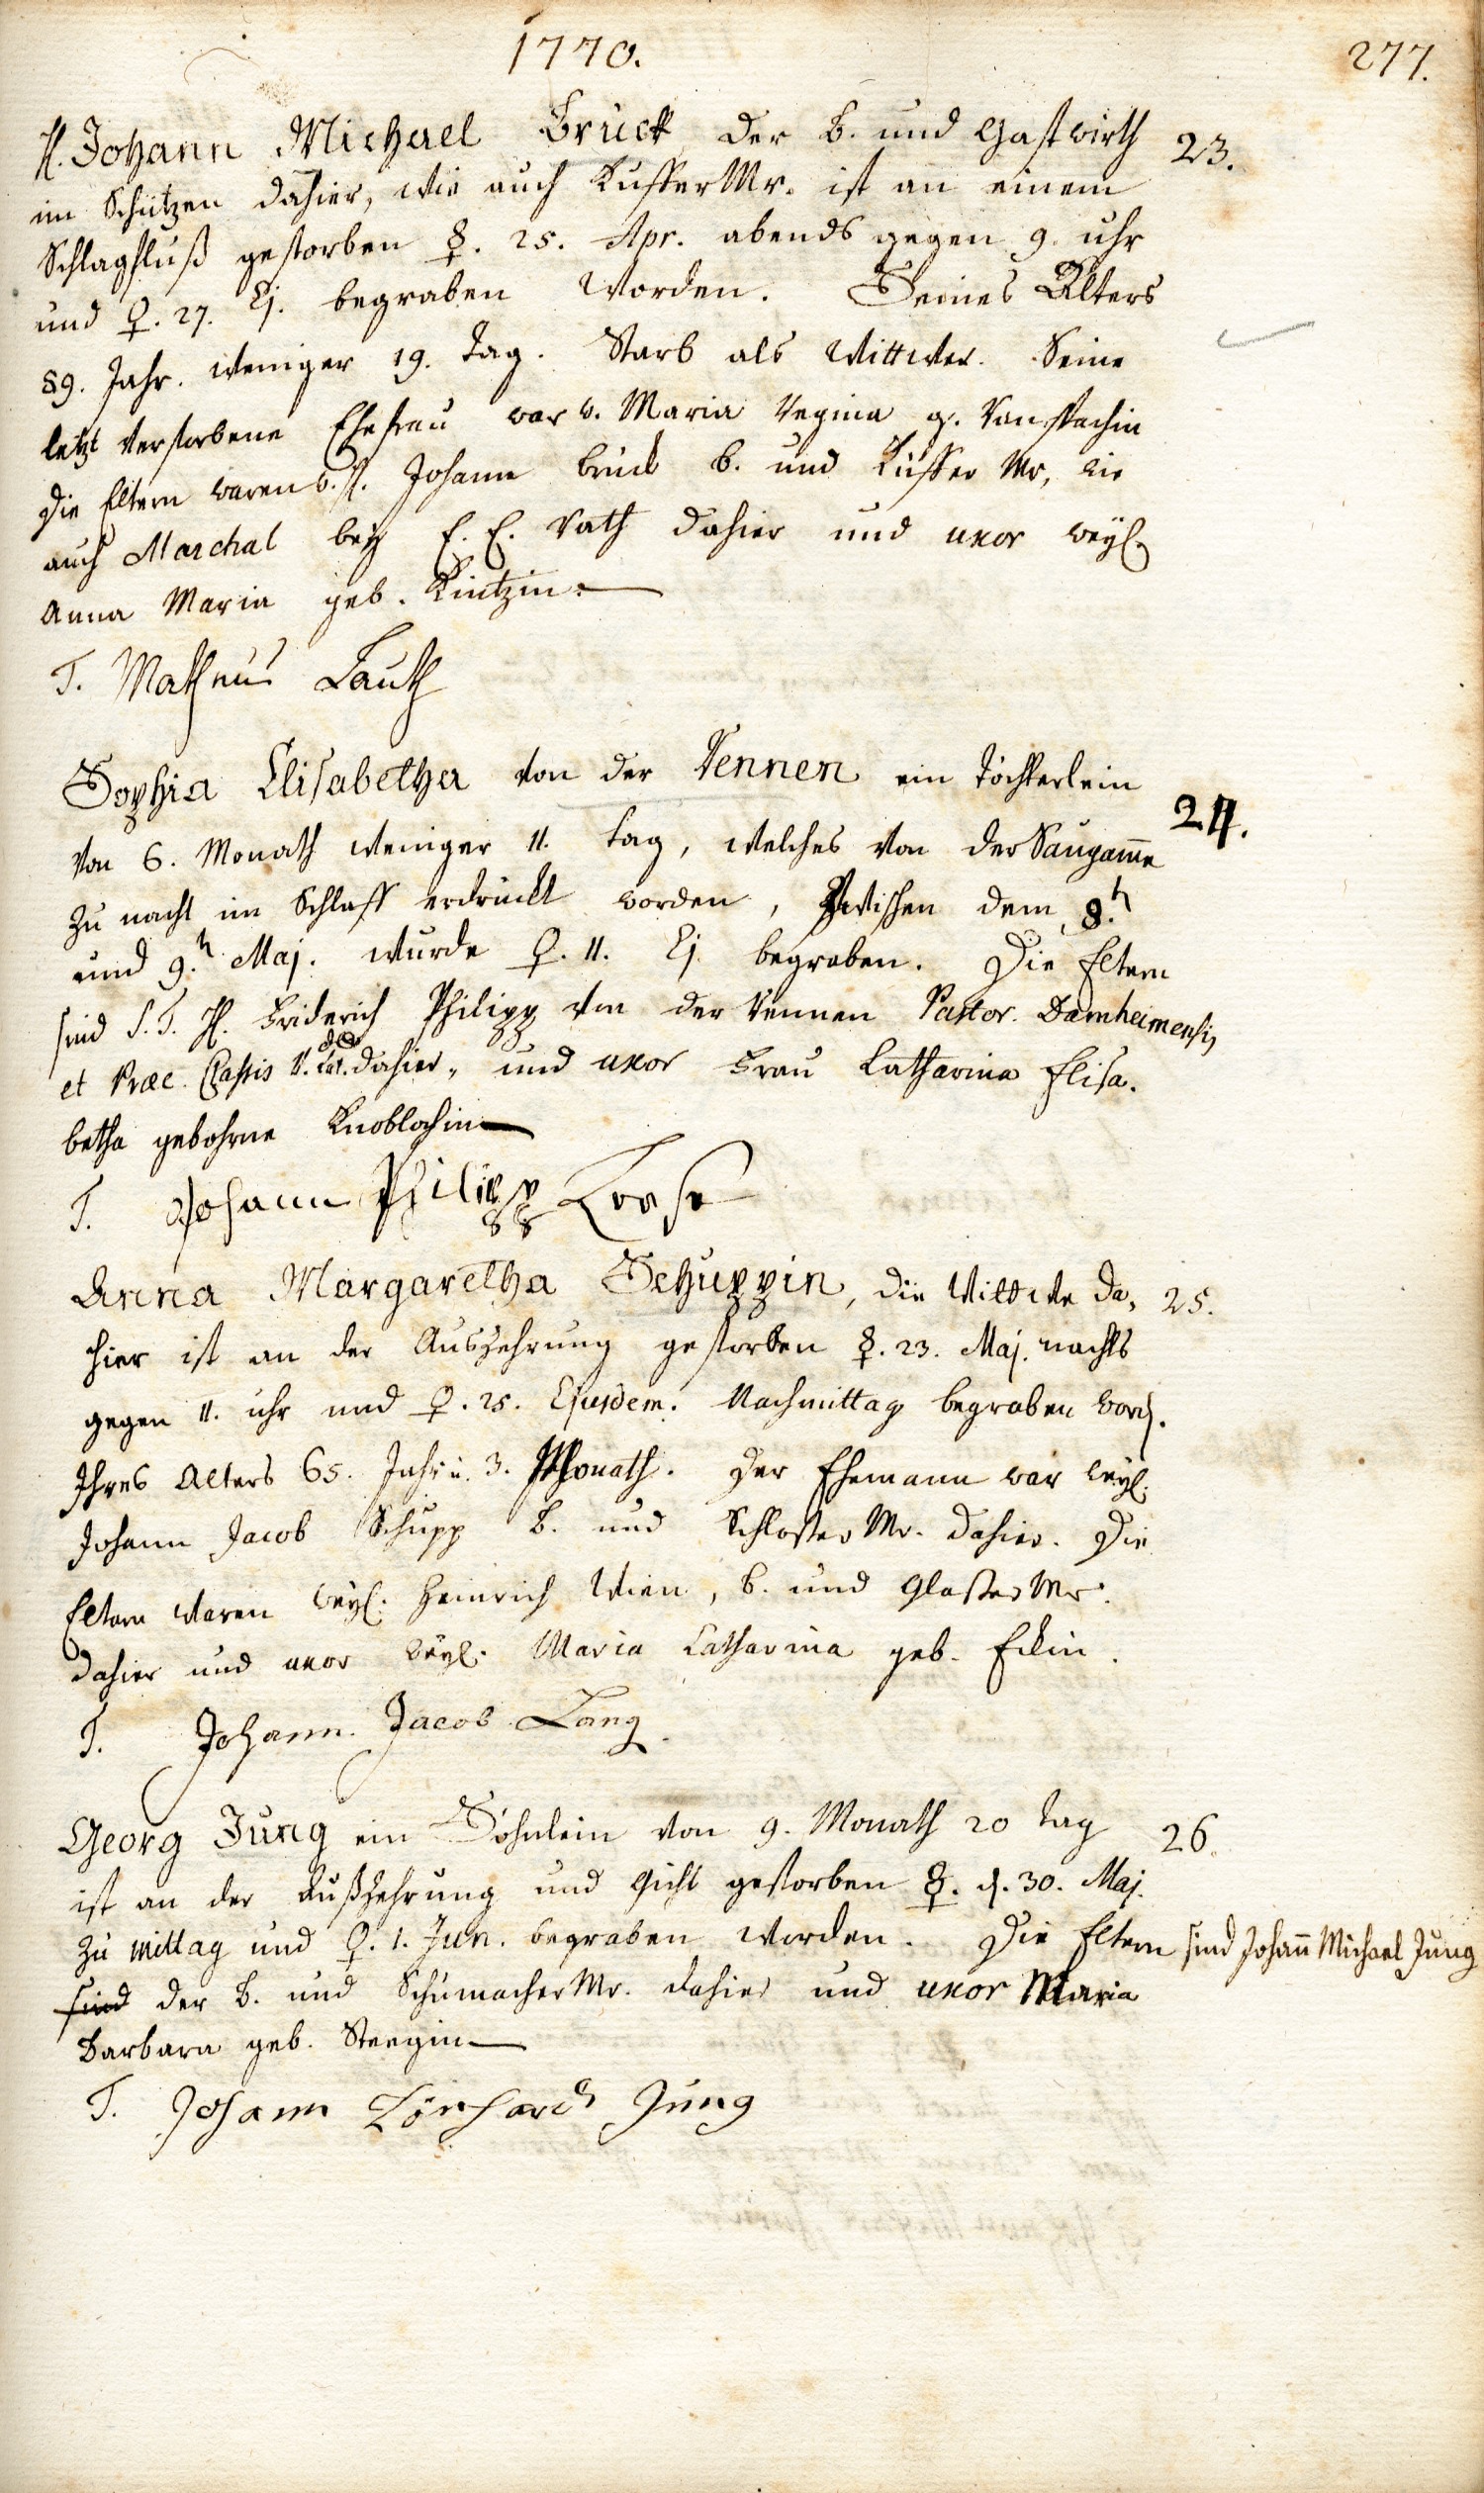 1770.
277.
H. Johann Michael Bruck der B. und Gastwirth 23.
im Schützen dahier, wie auch KufferMr. ist an einem
Schlagfluß gestorben ☿. 25. Apr. abends gegen 9. uhr
und ♀. 27. Ej. begraben worden. Seines Alters
89. Jahr. weniger 19. Tag. Starb als Wittwer. Seine
letzt verstorbene Ehefrau war w. Maria Regina g.
Die Eltern waren w. H. Johann Bruck B. und Küffer Mr, wie
auch Marchal bey E. E. Rath dahier und uxor weyl.
Anna Maria geb. Kintzin.
T. Matheus Lauth
Sophia Elisabetha von der Vennen ein Töchterlein
von 6. Monath weniger 11. Tag, welches von der Saugam̄e 24.
zu nacht im Schlaff erdrückt worden, Zwischen dem 8.ᵗ
und 9.ᵗ Maj. wurde ♀. 11. Ej. begraben. Die Eltern
sind S. T. H. Friderich Philipp von der Vennen Pastor. Damheimensis
et Præc. Classis dahier, und uxor Frau Catharina Elisa-
betha gebohrne Knoblochin
T. Johann Philipp Loose
Anna Margaretha Schuppin, die Wittwe da- 25.
hier ist an der Auszehrung gestorben ☿. 23. Maj. nachts
gegen 11. uhr und ♀. 25. Ejusdem. Nachmittag begraben word.
Ihres Alters 65. Jahr u. 3. Monath. Der Ehemann war weyl.
Johann Jacob Schupp B. und Schlosser Mr. dahier. Die
Eltern waren weyl. Heinrich Wien, B. und Glasser Mr.
dahier und uxor weyl. Maria Catharina geb. Eckin.
T. Johann Jacob Lang
Georg Jung ein Söhnlein von 9. Monath 20 Tag 26.
ist an der Außzehrung und Gicht gestorben ☿. d. 30. Maj.
zu mittag und ♀. 1. Jun. begraben worden. Die Eltern sind Johan̄ Michael Jung
sind der B. und Schumacher Mr. dahier und uxor Maria
Barbara geb. Steegin
T. Johann Lönhard Jung